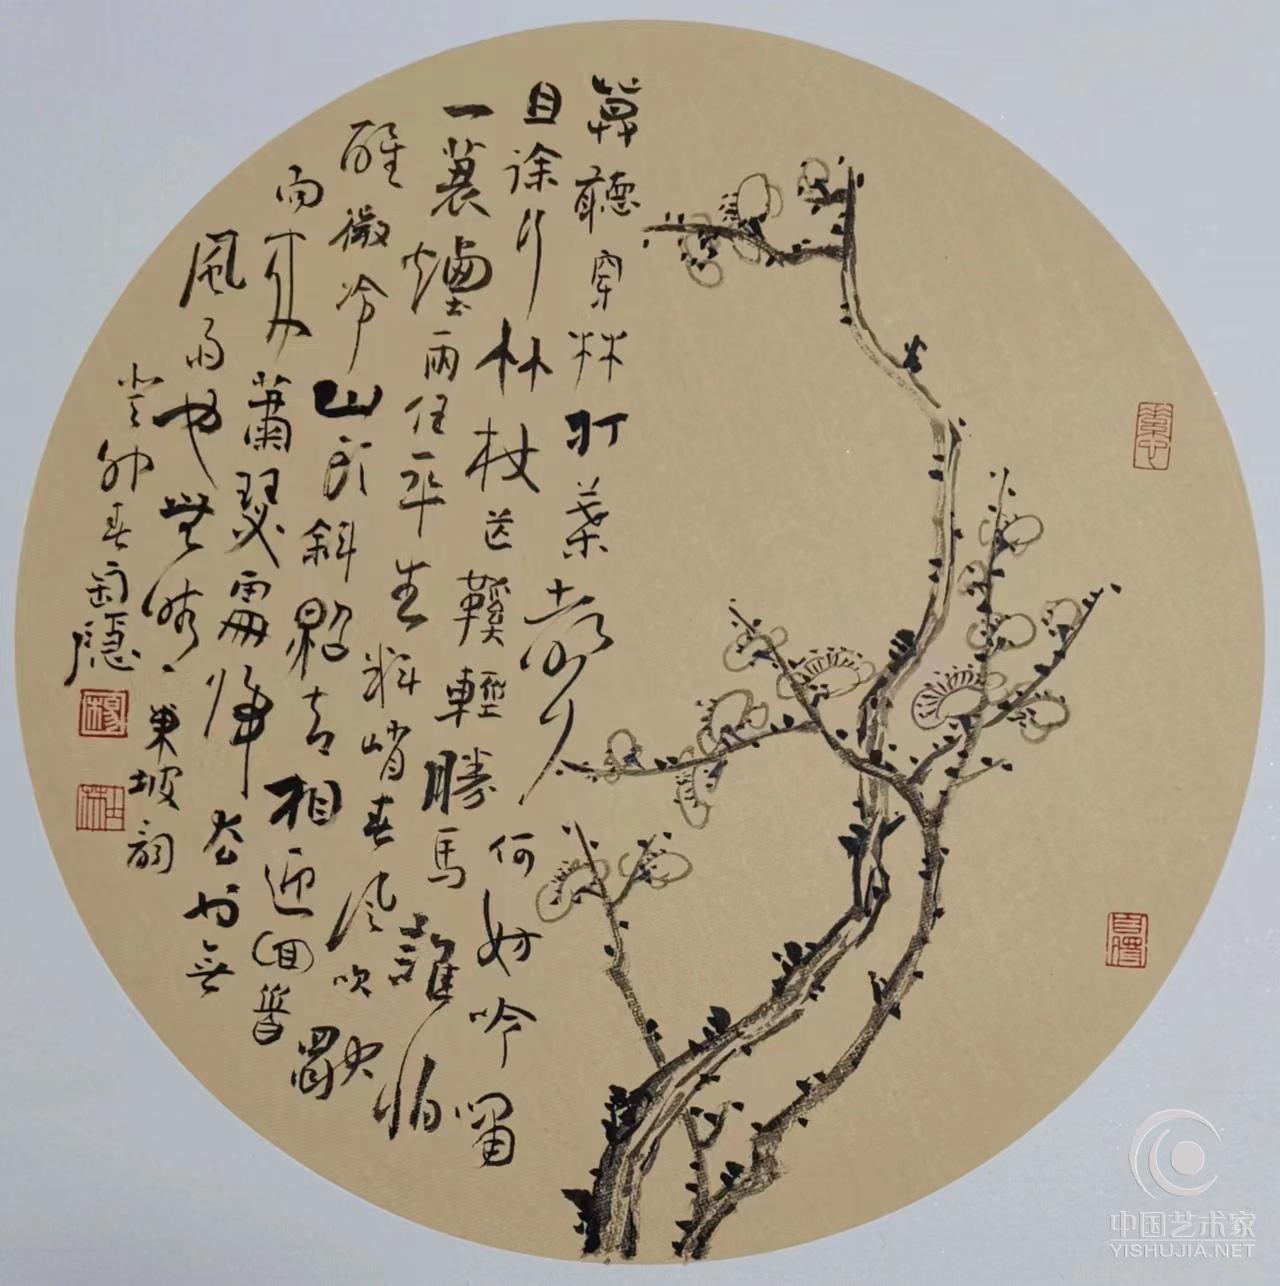 莫聽穿林打葉聲何妨吟嘯
且徐行竹杖芒鞵輕勝馬誰怕
一蓑煙雨任平生料峭春风吹酒
醒微冷山頭斜照却相迎回首
向来蕭瑟處歸去也無
風雨也無晴東坡詞
癸卯春隱
中国艺术家
YISHUJIA.NET